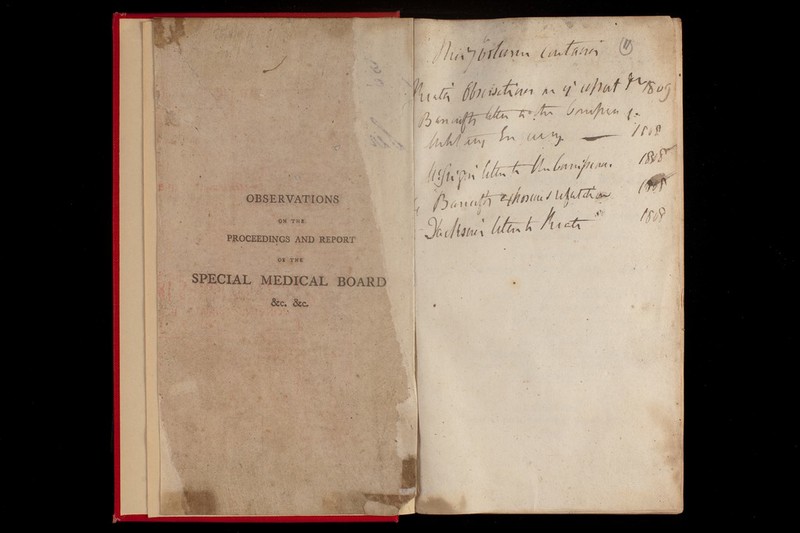 OBSERVATIONS
ON THE
PROCEEDINGS AND REPORT
OF THE
SPECIAL MEDICAL BOARD
&c. &c.
This volume contains
Keate's Observations on ye report &c 1809
Bancroft's letter to the Commrs of
Military Enquiry — 1808
letter to the Commissioners 1808
Bancroft's exposure & refutation 1808
Jackson's letter to Keate 1808